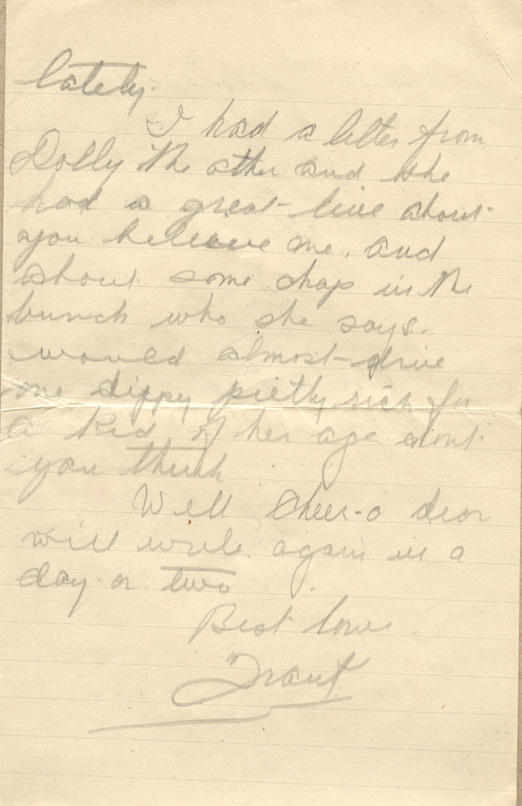 lately.
I had a letter from
Dolly the other and she
had a great line about
you beleieve me. and
about some chap in the
bunch who she says.
would almost drive
one dippy pretty rich for
a kid of her age dont
you think
Well Cheer-o dear
will write again in a
day or two
Best love